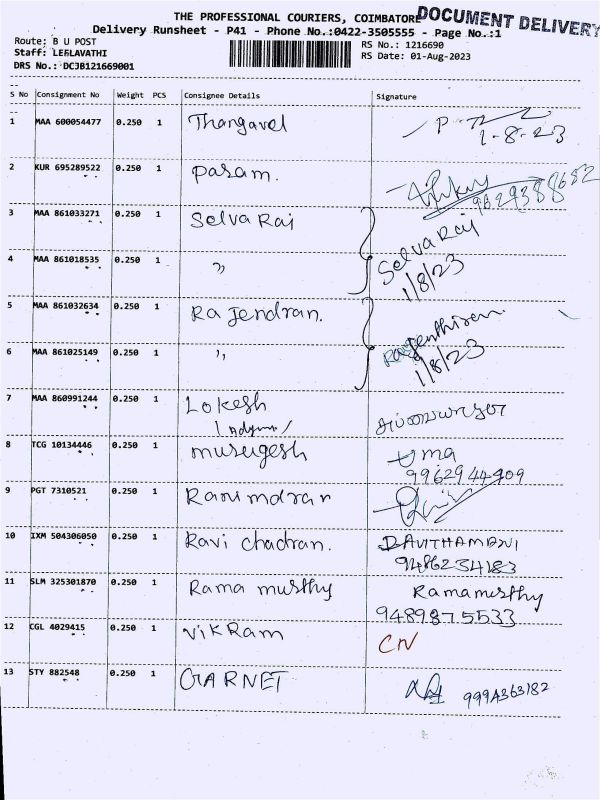 THE PROFESSIONAL COURIERS, COIMBATORE
DOCUMENT DELIVERY
Delivery Runsheet - P41 - Phone No.:0422-3505555 - Page No.:1
Route: B U POST
RS No.: 1216690
Staff: LEELAVATHI
RS Date: 01-Aug-2023
DRS No.: DCJB121669001
S No Consignment No Weight PCS Consignee Details Signature
1 MAA 600054477 0.250 1 Thangavel
1-8-23
2 KUR 695289522 0.250 1 Param.
9629388682
3 MAA 861033271 0.250 1 Selva Raj
Selva Raj
4 MAA 861018535 0.250 1 ,,
1/8/23
5 MAA 861032634 0.250 1 Rajendran.
6 MAA 861025149 0.250 1 ,,
1/8/23
7 MAA 860991244 0.250 1 Lokesh
8 TCG 10134446 0.250 1 murugesh uma
9962944909
9 PGT 7310521 0.250 1
10 IXM 504306050 0.250 1 Ravi chadran.
9486234183
11 SLM 325301870 0.250 1 Rama murthy Ramamurthy
9489875533
12 CGL 4029415 0.250 1 vikRam
13 STY 882548 0.250 1 GARNET